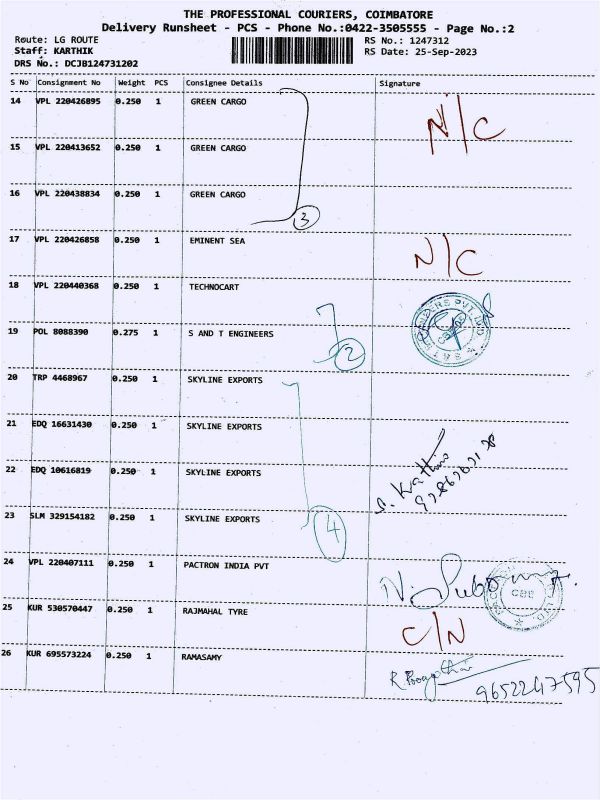 THE PROFESSIONAL COURIERS, COIMBATORE
Delivery Runsheet - PCS - Phone No.:0422-3505555 - Page No.:2
Route: LG ROUTE RS No.: 1247312
Staff: KARTHIK RS Date: 25-Sep-2023
DRS No.: DCJB124731202
S No Consignment No Weight PCS Consignee Details Signature
14 VPL 220426895 0.250 1 GREEN CARGO N/C
15 VPL 220413652 0.250 1 GREEN CARGO
16 VPL 220438834 0.250 1 GREEN CARGO
3
17 VPL 220426858 0.250 1 EMINENT SEA N/C
18 VPL 220440368 0.250 1 TECHNOCART
19 POL 8088390 0.275 1 S AND T ENGINEERS
2
20 TRP 4468967 0.250 1 SKYLINE EXPORTS
21 EDQ 16631430 0.250 1 SKYLINE EXPORTS
22 EDQ 10616819 0.250 1 SKYLINE EXPORTS
23 SLM 329154182 0.250 1 SKYLINE EXPORTS
4
24 VPL 220407111 0.250 1 PACTRON INDIA PVT
25 KUR 530570447 0.250 1 RAJMAHAL TYRE C/N
26 KUR 695573224 0.250 1 RAMASAMY
9652247595